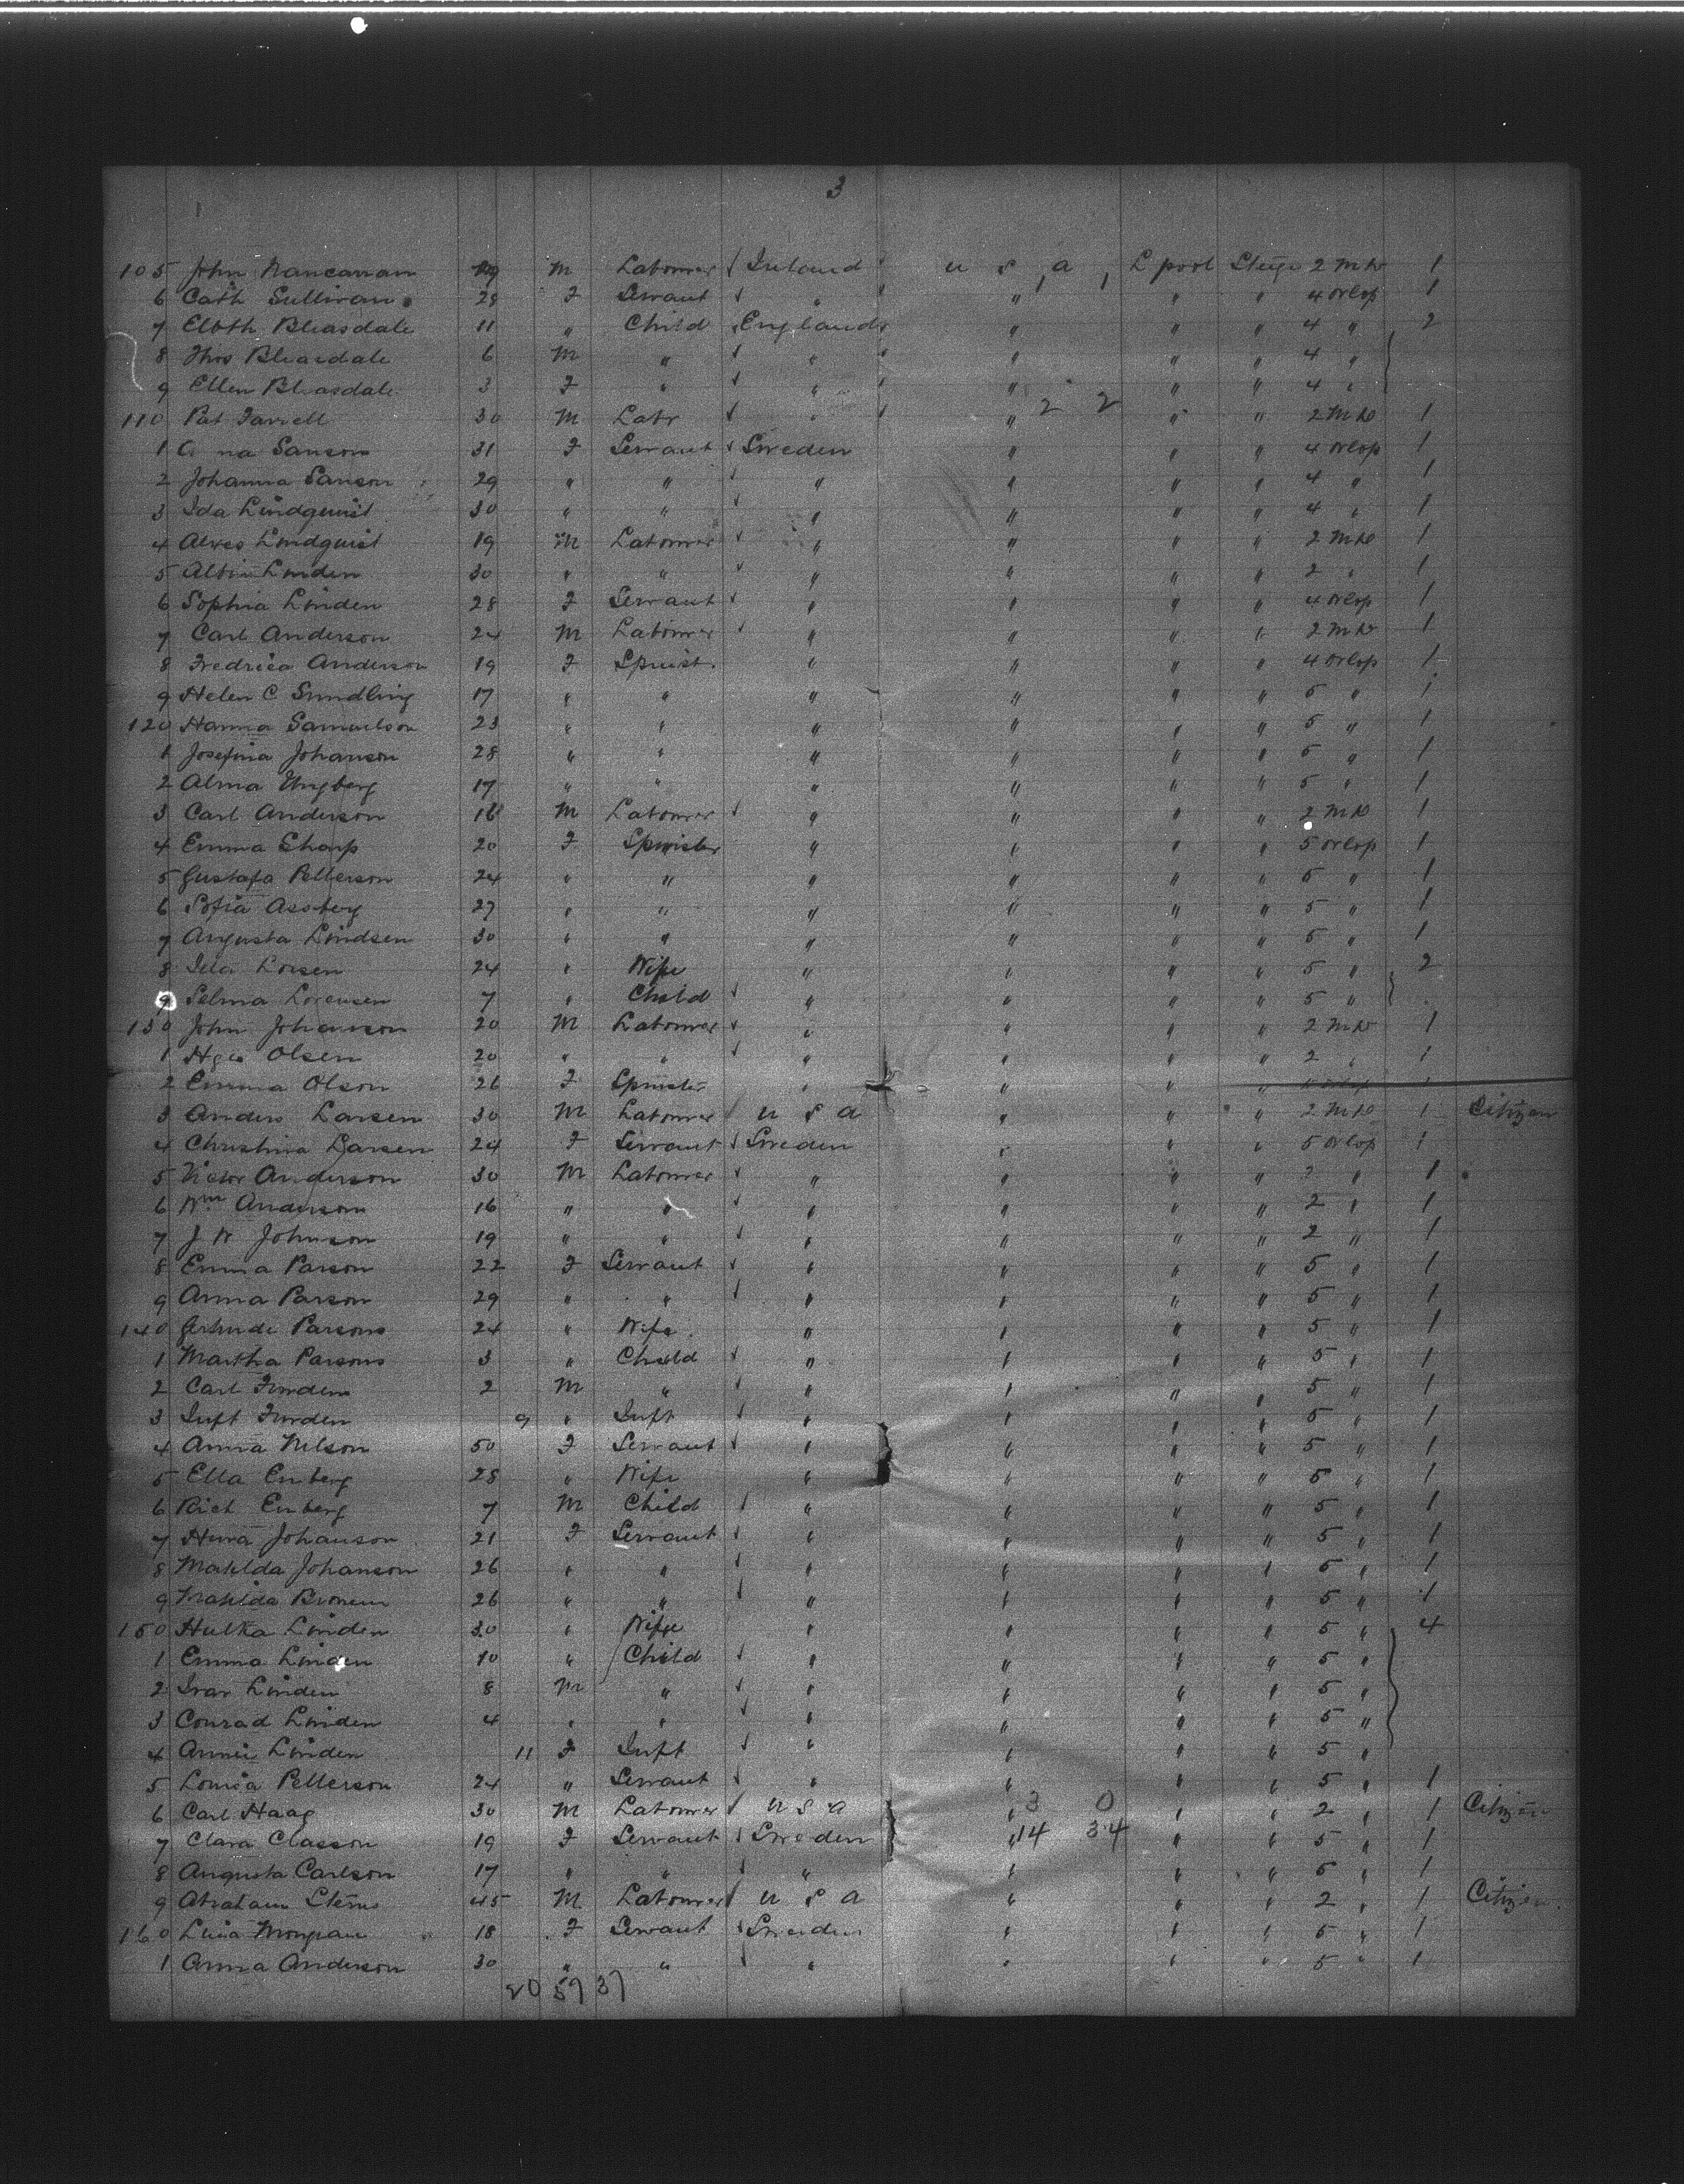 3
105 John Nancarran 19 M Labourer √ Ireland u s a L pool Stege 2 Mko 1
6 Cath Sullivan 28 F Servant √ " " " " 4 orlop 1
7 Elbth Bleasdale 11 " Child England " " " 4 " 2
8 Thos Bleasdale 6 M " √ " " " " 4 "
9 Ellen Bleasdale 3 F " √ " " " " 4 "
110 Pat Farrell 30 M Labr √ " " 2 2 " " 2 Mko 1
1 na Sanson 31 F Servant √ Sweden " " " 4 orlop 1
2 Johanna Sanson 29 " " √ " " " " 4 " 1
3 Ida Lindquist 30 " " √ " " " " 4 " 1
4 Lindquist 19 M Labourer √ " " " " 2 Mko 1
5 Albin Linden 30 " " √ " " " " 2 " 1
6 Sophia Linden 28 F Servant √ " " " " 4 orlop 1
7 Carl Anderson 24 M Labourer √ " " " " 2 Mko 1
8 Fredrica Anderson 19 F Spinst. " " " " 4 orlop 1
9 Helen C Sundling 17 " " " " " " 5 " 1
120 Hanna Samuelson 23 " " " " " " 5 " 1
1 Josefina Johanson 28 " " " " " " 5 " 1
2 Alma Ungberg 17 " " " " " " 5 " 1
3 Carl Anderson 18 M Labourer √ " " " " 2 Mko 1
4 Emma Sharp 20 F Spinster " " " " 5 orlop 1
5 Gustafa Petterson 24 " " " " " " 5 " 1
6 Sofia Assberg 27 " " " " " " 5 " 1
7 Augusta Lindsen 30 " " " " " " 5 " 1
8 Ida Lorsen 24 " Wife " " " " 5 " 2
9 Selma Lorensen 7 " Child √ " " " " 5 "
130 John Johanson 20 M Labourer √ " " " " 2 Mko 1
1 Olsen 20 " " √ " " " " 2 " 1
2 Emma Olson 26 F Spinster " " " "
3 Anders Larsen 30 M Labourer √ u s a " " " 2 Mko 1 Citizen
4 Christina Larsen 24 F Servant √ Sweden " " " 5 orlop 1
5 Victor Anderson 30 M Labourer √ " " " " 2 " 1
6 Wm Anderson 16 " " √ " " " " 2 " 1
7 J W Johnson 19 " " √ " " " " 2 " 1
8 Emma Parson 22 F Servant √ " " " " 5 " 1
9 Anna Parson 29 " " √ " " " " 5 " 1
140 Gertrude Parsons 24 " Wife " " " " 5 " 1
1 Martha Parsons 3 " Child √ " " " " 5 " 1
2 Carl Furden 2 M " √ " " " " 5 " 1
3 Inft Furden 9 " Inft √ " " " " 5 " 1
4 Anna Nelson 50 F Servant √ " " " " 5 " 1
5 Ella Enberg 28 " Wife " " " " 5 " 1
6 Rich Enberg 7 M Child √ " " " " 5 " 1
7 Johanson 21 F Servant √ " " " " 5 " 1
8 Matilda Johanson 26 " " √ " " " " 5 " 1
9 Matilda 26 " " √ " " " " 5 " 1
150 Hulka Linden 30 " Wife " " " " 5 " 4
1 Emma Linden 10 " Child √ " " " " 5 "
2 Ivar Linden 8 M " √ " " " " 5 "
3 Conrad Linden 4 " " √ " " " " 5 "
4 Annie Linden 11 F Inft √ " " " " 5 "
5 Louisa Petterson 24 " Servant √ " " " " 5 " 1
6 Carl Haag 30 M Labourer √ u s a " 3 0 " " 2 " 1 Citizen
7 Clara Classon 19 F Servant √ Sweden " 14 34 " " 5 " 1
8 Augusta Carlson 17 " " √ " " " " 5 " 1
9 Abraham 45 M Labourer √ u s a " " " 2 " 1 Citizen
160 18 F Servant √ Sweden " " " 5 " 1
1 Anna Anderson 30 " " √ " " " " 5 " 1
20 57 37